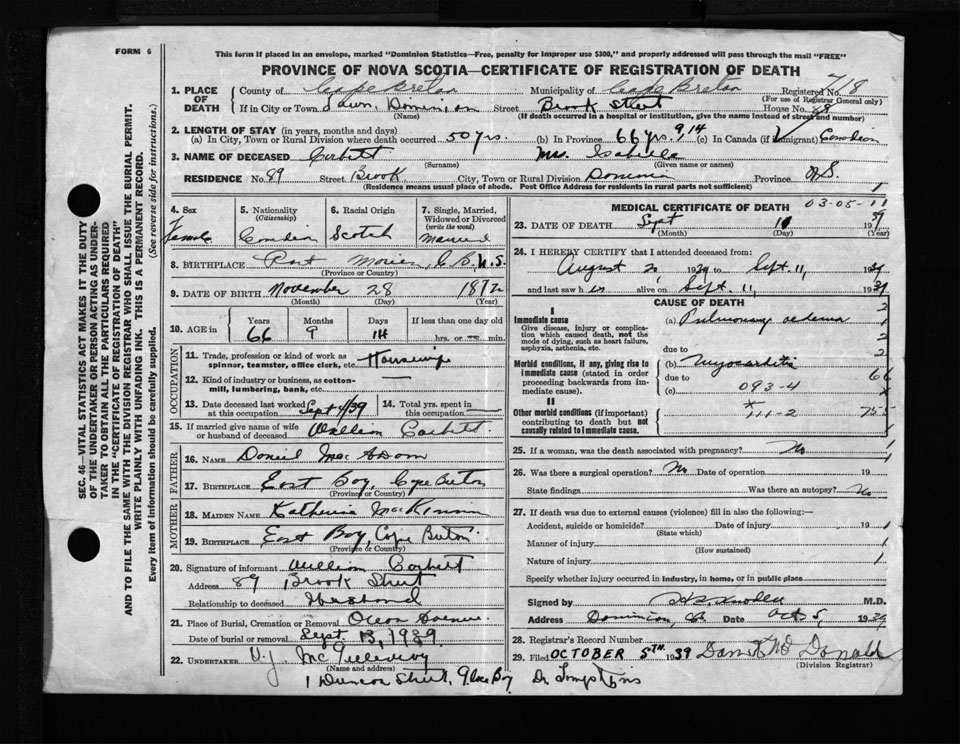 FORM 6
This form if placed in an envelope, marked "Dominion Statistics—Free, penalty for improper use $300," and properly addressed will pass through the mail "FREE"
PROVINCE OF NOVA SCOTIA—CERTIFICATE OF REGISTRATION OF DEATH
SEC. 46—VITAL STATISTICS ACT MAKES IT THE DUTY
OF THE UNDERTAKER OR PERSON ACTING AS UNDER-
TAKER TO OBTAIN ALL THE PARTICULARS REQUIRED
IN THE "CERTIFICATE OF REGISTRATION OF DEATH"
AND TO FILE THE SAME WITH THE DIVISION REGISTRAR WHO SHALL ISSUE THE BURIAL PERMIT.
WRITE PLAINLY WITH UNFADING INK. THIS IS A PERMANENT RECORD.
Every item of information should be carefully supplied. (See reverse side for instructions.)
1. PLACE OF DEATH County of Cape Breton Municipality of Cape Breton Registered No. 718
(For use of Registrar General only)
If in City or Town Dominion Street Brook Street House No.
(Name) (If death occurred in a hospital or institution, give the name instead of street and number)
2. LENGTH OF STAY (in years, months and days)
(a) In City, Town or Rural Division where death occurred 50 yrs. (b) In Province 66 yrs. 9, 14 (c) In Canada (if immigrant) Canadian
3. NAME OF DECEASED Corbett Mrs. Isabella
(Surname) (Given name or names)
RESIDENCE No. 89 Street Brook City, Town or Rural Division Dominion Province N.S.
(Residence means usual place of abode. Post Office Address for residents in rural parts not sufficient) 1
4. Sex Female
5. Nationality (Citizenship) Canadian
6. Racial Origin Scotch
7. Single, Married, Widowed or Divorced (write the word) Married
8. BIRTHPLACE Port Morien, C.B., N.S.
(Province or Country)
9. DATE OF BIRTH November 28 1872
(Month) (Day) (Year)
10. AGE in Years 66 Months 9 Days 14 If less than one day old hrs. or min.
OCCUPATION
11. Trade, profession or kind of work as spinner, teamster, office clerk, etc. Housewife
12. Kind of industry or business, as cotton-mill, lumbering, bank, etc. —
13. Date deceased last worked at this occupation Sept 11/39 14. Total yrs. spent in this occupation —
15. If married give name of wife or husband of deceased William Corbett
FATHER
16. NAME Daniel MacAdam
17. BIRTHPLACE East Bay, Cape Breton
(Province or Country)
MOTHER
18. MAIDEN NAME Katherine MacKinnon
19. BIRTHPLACE East Bay, Cape Breton
(Province or Country)
20. Signature of informant William Corbett
Address 89 Brook Street
Relationship to deceased Husband
21. Place of Burial, Cremation or Removal Ocean Avenue
Date of burial or removal Sept 13, 1939
22. UNDERTAKER V.J. McGillivray
(Name and address)
1 Duncan Street, Glace Bay
MEDICAL CERTIFICATE OF DEATH 03-05-11
23. DATE OF DEATH Sept 11 1939
(Month) (Day) (Year)
24. I HEREBY CERTIFY that I attended deceased from:
August 2, 1939 to Sept. 11, 1939
and last saw h er alive on Sept. 11, 1939
CAUSE OF DEATH
I
Immediate cause
Give disease, injury or complication which caused death, not the mode of dying, such as heart failure, asphyxia, asthenia, etc.
(a) Pulmonary oedema
due to
Morbid conditions, if any, giving rise to immediate cause (stated in order proceeding backwards from immediate cause).
(b) Myocarditis
due to
(c) 093-4
II
Other morbid conditions (if important) contributing to death but not causally related to immediate cause.
111-2
25. If a woman, was the death associated with pregnancy? No
26. Was there a surgical operation? No Date of operation 19
State findings Was there an autopsy? No
27. If death was due to external causes (violence) fill in also the following:—
Accident, suicide or homicide? Date of injury 19
(State which)
Manner of injury
(How sustained)
Nature of injury
Specify whether injury occurred in industry, in home, or in public place
Signed by M.D.
Address Dominion, C.B. Date Oct 5, 1939
28. Registrar's Record Number
29. Filed OCTOBER 5TH 1939
(Division Registrar)